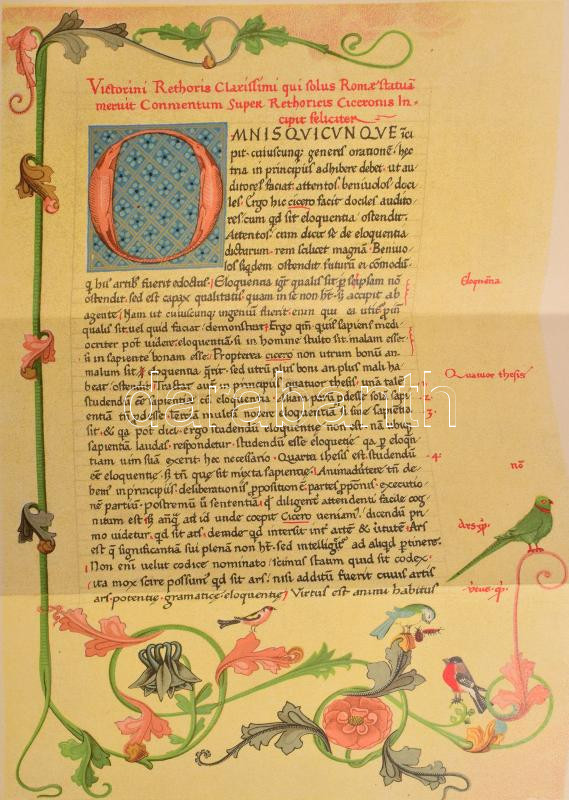 Victorini Rethoris Clarissimi qui solus Romæ statuā
meruit Conmentum Super Rethoricis Ciceronis In-
cipit feliciter
OMNIS QVICVNQVE īci
pit cuiuscunq; generis orationē hec
tria in principiis adhibere debet ut au
ditores faciat attentos beniuolos doci
les Ergo hic cicero facit dociles audito
res cum qd sit eloquentia ostendit
Attentos cum dicit se de eloquentia
dicturum rem scilicet magnā Beniuo
los siqdem ostendit futurū ei cōmodū
q his artibȝ fuerit edoctus Eloquentia igr qualis sit p seipsam nō
ostendit sed est capax qualitatis quam in se non ht sȝ accipit ab
agente Nam ut cuiuscunq; ingeniū fuerit
qualis sit uel quid faciat demonstrat Ergo qm quis sapiens medi
ocriter pot videre eloquentiā si in homine stulto sit malam esse
si in sapiente bonam esse Propterea cicero non utrum bonū an
malum sit eloquentia qrit sed utrū plus boni an plus mali ha
beat ostendit Tractat aut in principiis quatuor thesis unā tale
studendū eē sapientie cū eloquentia
entiā prodesse Tertiā multū nocere eloquentiā sine sapientia
sit & qa pot dici ergo studendū eloquentie non est nā
sapientiā laudas respondetur studendū esse eloquētie qa p eloqn
tiam uim suā exerit hec necessario Quarta thesis est studendū
eē eloquentie sȝ tn que sit mixta sapientie Animaduitere tn de
bemus in principiis deliberationis ppositionē partes pponis executio
nē partiū postremū ū sententiā q diligenti attendenti facile cog
nitum est sȝ anq ad id unde coepit Cicero veniam dicendū pri
mo videtur qd sit ars deinde qd intersit int artē & uirtutē Ars
est q significantiā sui plenā non ht sed intelligit ad aliqd ptinere
Non eni uelut codice nominato scimus statim quid sit codex
ita mox scire possum qd sit ars nisi additū fuerit cuius artis
ars potentie gramatice eloquentie Virtus est animi habitus
Eloquētia
Quatuor thesis
1
2
3
4
nō
Ars
Virtus
darabanth